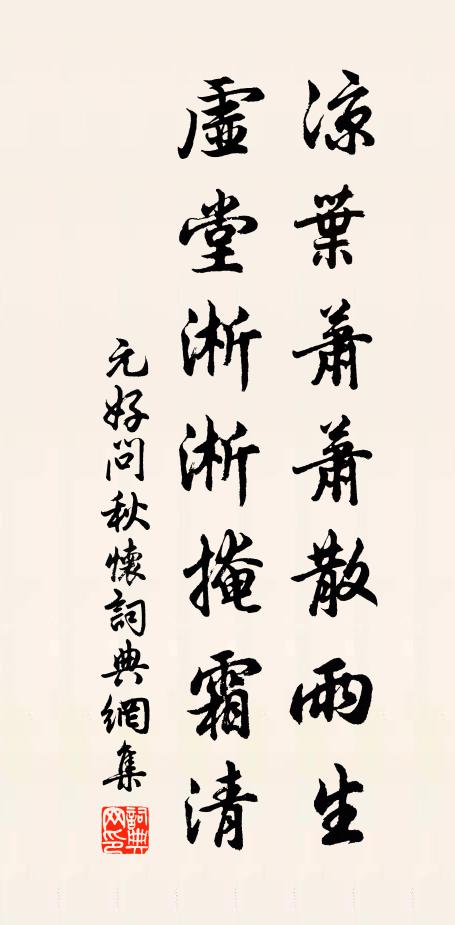 涼葉蕭蕭散雨生
虛堂淅淅掩霜清
元好問秋懷詞典網集
詞典
网印